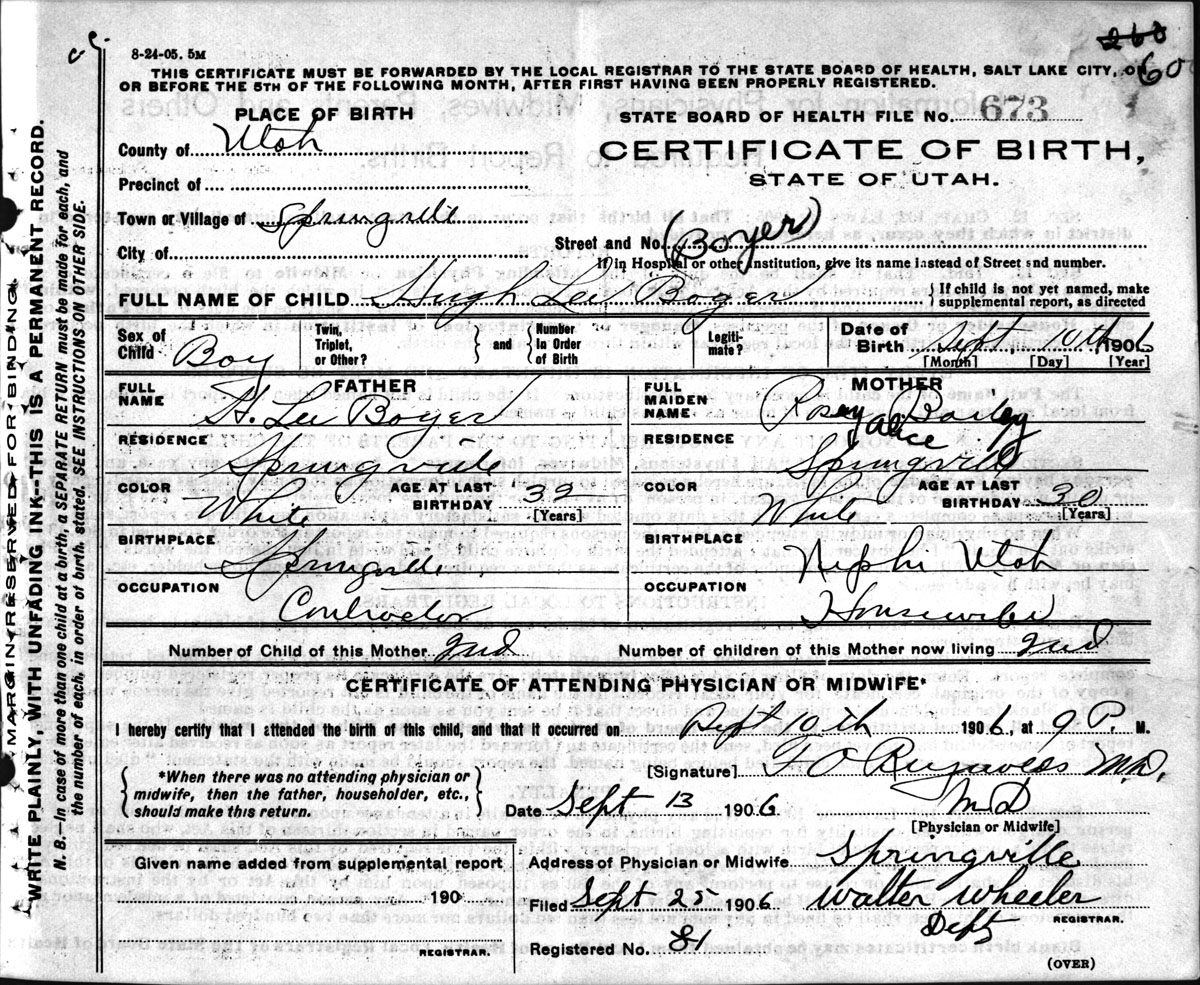 8-24-05. 5M
260
60
THIS CERTIFICATE MUST BE FORWARDED BY THE LOCAL REGISTRAR TO THE STATE BOARD OF HEALTH, SALT LAKE CITY, ON
OR BEFORE THE 5TH OF THE FOLLOWING MONTH, AFTER FIRST HAVING BEEN PROPERLY REGISTERED.
PLACE OF BIRTH
STATE BOARD OF HEALTH FILE No. 673
County of Utah
CERTIFICATE OF BIRTH,
STATE OF UTAH.
Precinct of
Town or Village of Springville
City of
Street and No. (Boyer)
If in Hospital or other institution, give its name instead of Street and number.
FULL NAME OF CHILD Hugh Lee Boyer
If child is not yet named, make supplemental report, as directed
Sex of Child Boy
Twin, Triplet, or Other?
and
Number In Order of Birth
Legitimate?
Date of Birth Sept, 10th, 1906
[Month] [Day] [Year]
FATHER
FULL NAME H. Lee Boyer
RESIDENCE Springville
COLOR White
AGE AT LAST BIRTHDAY 32 [Years]
BIRTHPLACE Springville
OCCUPATION Contractor
MOTHER
FULL MAIDEN NAME Rosey Alice Bailey
RESIDENCE Springville
COLOR White
AGE AT LAST BIRTHDAY 30 [Years]
BIRTHPLACE Nephi Utah
OCCUPATION Housewife
Number of Child of this Mother 2nd
Number of children of this Mother now living 2nd
CERTIFICATE OF ATTENDING PHYSICIAN OR MIDWIFE*
I hereby certify that I attended the birth of this child, and that it occurred on Sept 10th 1906, at 9 P. M.
*When there was no attending physician or midwife, then the father, householder, etc., should make this return.
[Signature] M.D.
Date Sept 13 1906
MD
[Physician or Midwife]
Given name added from supplemental report
190
REGISTRAR.
Address of Physician or Midwife Springville
Filed Sept 25 1906. Walter Wheeler
Dept REGISTRAR.
Registered No. 81
(OVER)
MARGIN RESERVED FOR BINDING
WRITE PLAINLY, WITH UNFADING INK--THIS IS A PERMANENT RECORD.
N. B.—In case of more than one child at a birth, a SEPARATE RETURN must be made for each, and
the number of each, in order of birth, stated. SEE INSTRUCTIONS ON OTHER SIDE.